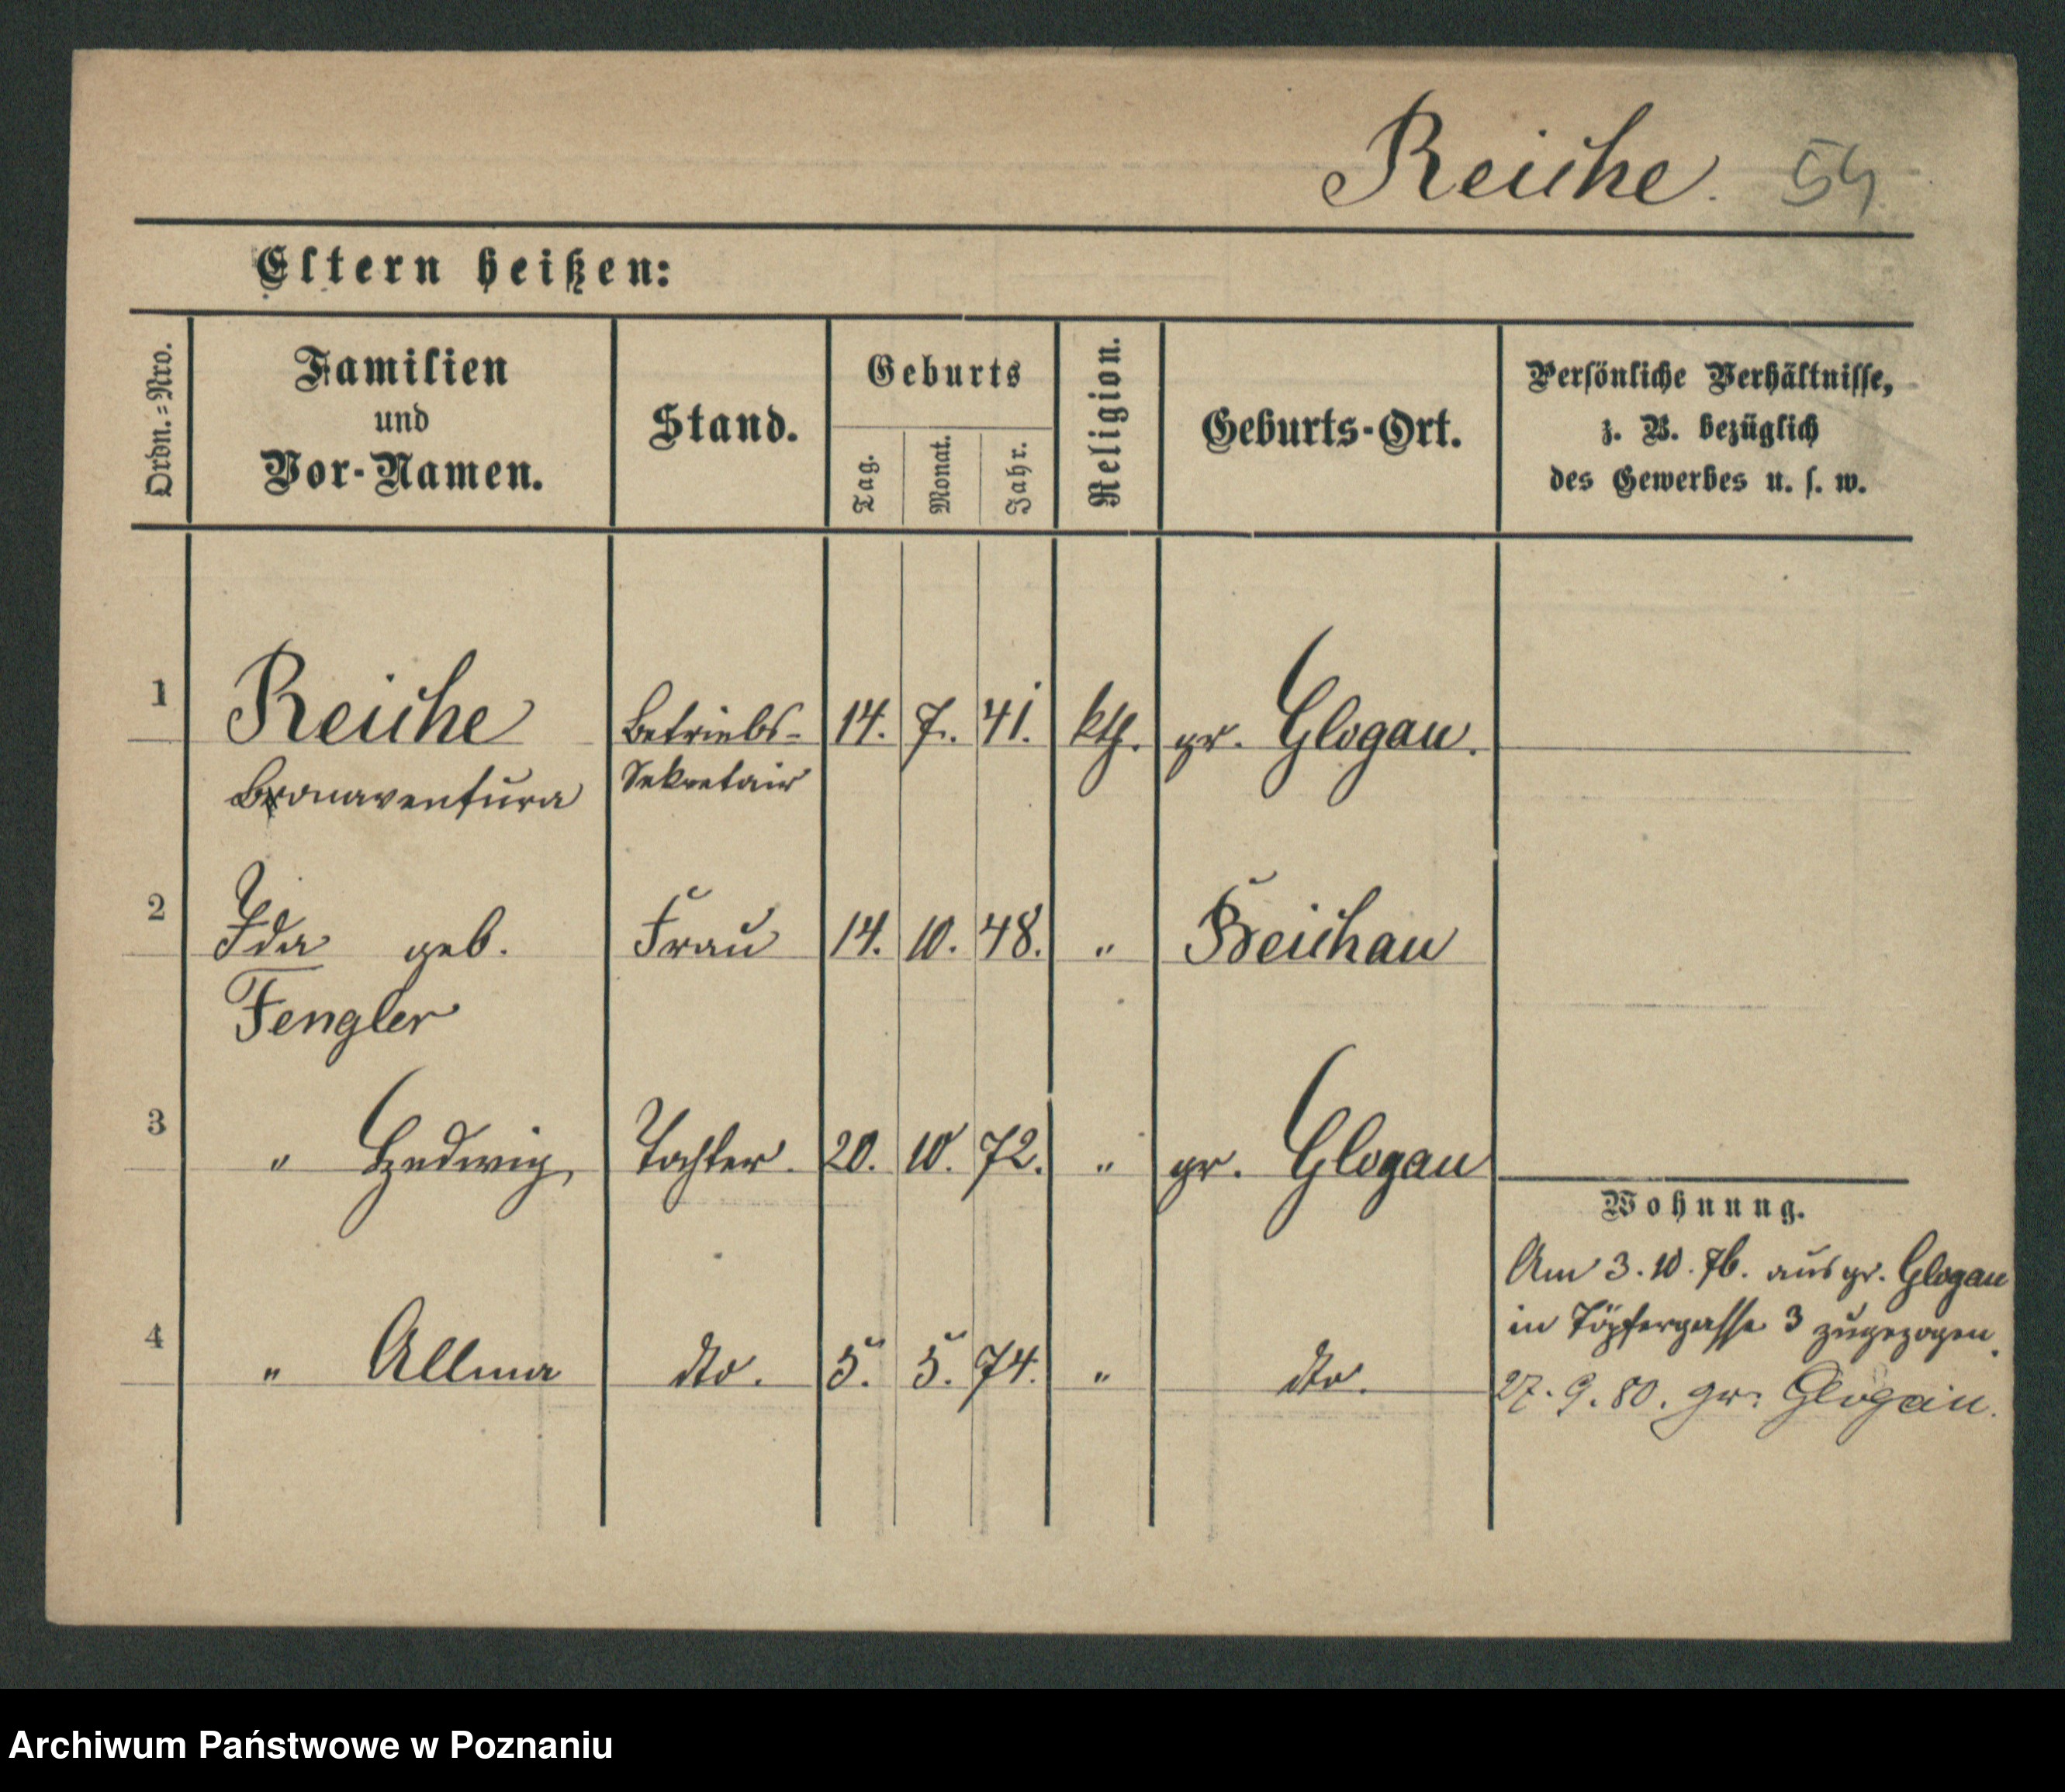 Reiche. 54
Eltern heißen:
Ordn.=Nro.
Familien
und
Vor-Namen.
Stand.
Geburts
Tag.
Monat.
Jahr.
Religion.
Geburts-Ort.
Persönliche Verhältnisse,
z. B. bezüglich
des Gewerbes u. s. w.
1 Reiche Betriebs- 14. 7. 41. kth. gr. Glogau.
Bonaventura Sekretair
2 Ida geb. Frau 14. 10. 48. " Beichau
Fengler
3 " Hedwig Tochter. 20. 10. 72. " gr. Glogau
Wohnung.
Am 3. 10. 76. aus gr. Glogau
in Töpfergasse 3 zugezogen.
4 " Allma dto. 5. 5. 74. " dto.
27. 9. 80. gr. Glogau.
Archiwum Państwowe w Poznaniu